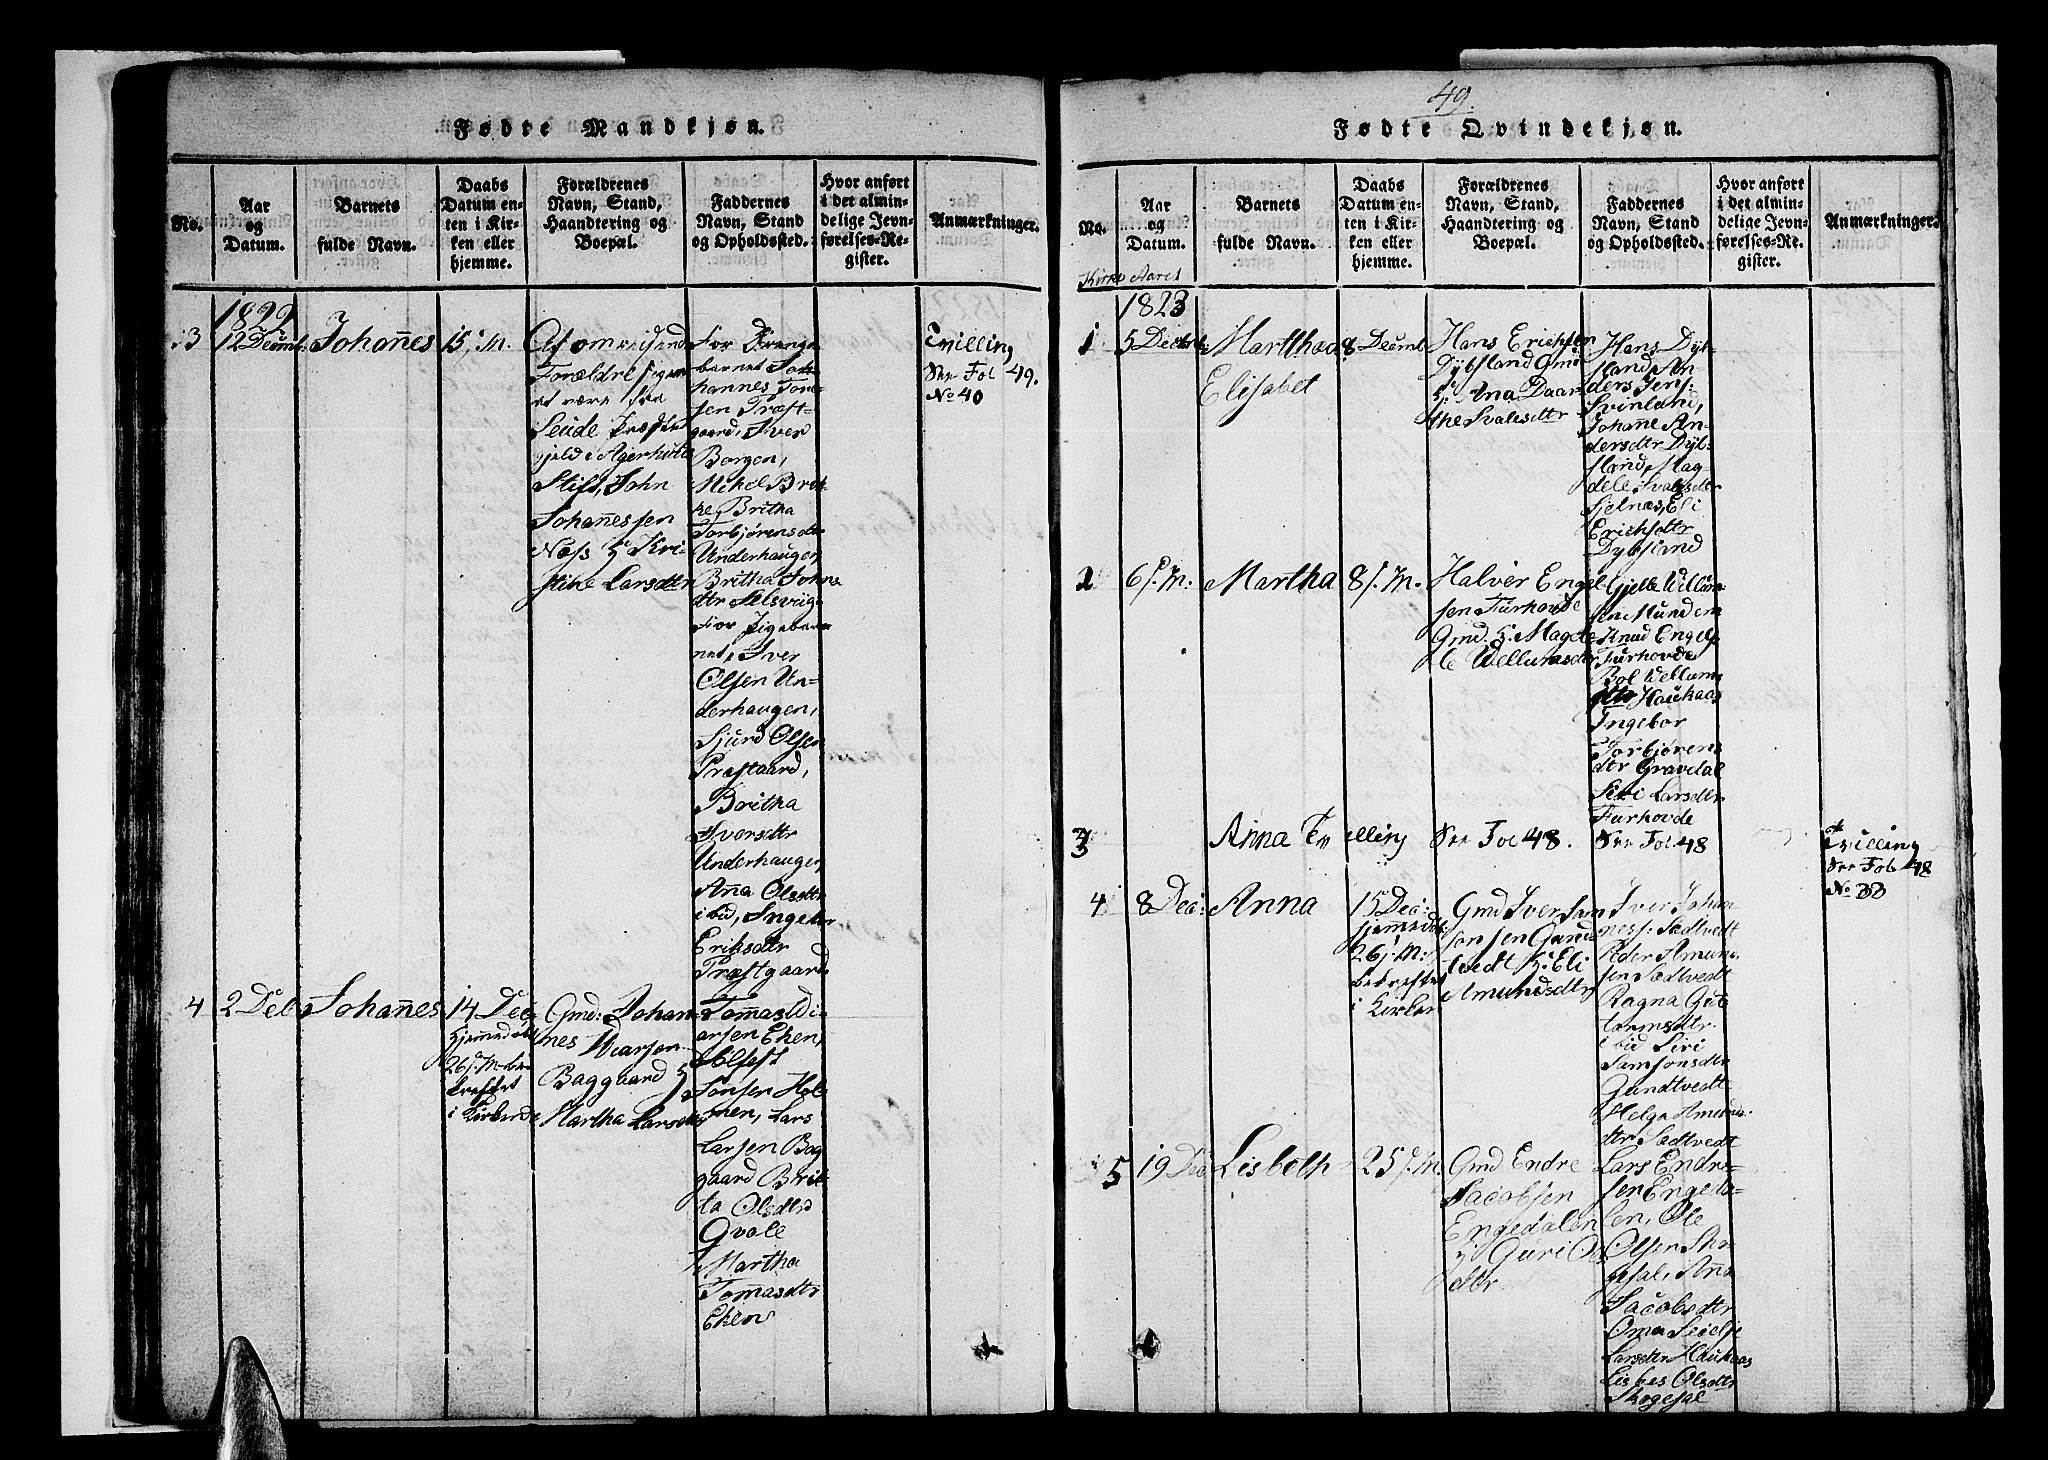 Fødte Mandkjøn.
No.
Aar
og
Datum.
Barnets
fulde Navn.
Daabs
Datum en-
ten i Kir-
ken eller
hjemme.
Forældrenes
Navn, Stand,
Haandtering og
Boepæl.
Faddernes
Navn, Stand
og Opholdssted.
Hvor anført
i det almin-
delige Jevn-
førelses-Re-
gister.
Anmærkninger.
1822
3
12 Decmbr:
Johañes
15 j. M.
Af omreisend
Forældre sigen
at være fra
Seude Præste
gjeld i Agerhuus
Stift, John
Johañessen
Næss H: Kri-
stine Larsdtr
For Drenge
barnet Jo-
hannes Tore-
sen Præst-
gaard, Iver
Borgen,
Mikel Brek-
ke, Britha
Torbjørensdtr
Underhaugen,
Britha Johne
dtr Selsviig
For Pigebarn
net, Iver
Olsen Un-
derhaugen,
Sjurd Olsen
Præstaard,
Britha
Iversdtr
Underhaugen,
Aña Olsdtr
ibid, Ingebor
Eriksdtr
Præstgaard
Tvilling
See Fol 49.
No 40
4
2 Dec
Johañes
14 Dec
hjemmedøbt
26 j. M. be-
kræftet
i Kirken
Gmd: Johan
nes Iversen
Baggaard H
Martha Larsdtr
Tomas Di-
arsen Eken,
Jonsen Hol
men, Lars
Larsen Bag
gaard Brit-
ta Olsdtr
Qvale
Martha
Tomasdtr
Eken
49.
Fødte Qvindekjøn.
No.
Aar
og
Datum.
Barnets
fulde Navn.
Daabs
Datum en-
ten i Kir-
ken eller
hjemme.
Forældrenes
Navn, Stand,
Haandtering og
Boepæl.
Faddernes
Navn, Stand
og Opholdssted.
Hvor anført
i det almin-
delige Jevn-
førelses-Re-
gister.
Anmærkninger.
Kirke Aaret
1823
1
5 Decbr:
Marthaa
Elisabet
8 Decmb
Hans Erichsen
Dybsland Gm
H: Ana Daar-
the Svalesdtr
Hans Dyb-
sland An-
ders Jens:
Svinland,
Johane An-
dersdtr Dyb-
sland, Mag-
dele Svalesdtr
Sjelnes, Eli
Erichsdtr
Dybsland
2
6 j. M:
Martha
8 j. M.
Halver Engel
sen Furhovde
Gmd. H: Magde
le Wellumsdtr
Gjelle Willum
sen Munden
Knud Engels
Furhovde
Bol Wellums
dtr Haukaas
Ingebor
Torbjørens
dtr Gravdal
Siri Larsdtr
Furhovde
3
Anna Tvelling
See Fol 48.
See Fol 48
Tvilling
See Fol 48
No 33
4
8 Dec:
Anna
15 Dec:
hjemmedøb
26 j. M:
bekræftet
i Kirken
Gmd Iver Sam
sonsen Gund
tvedt H: Eli
Amundsdtr
Iver Johan
ness. Sædtvedt
Peder Amund
sen Sædtvedt
Ragna Gut
tormsdtr
ibid Siri
Samsonsdtr
Gundtvedt
Helga Amunds:
dtr Sædtvedt
5
19 Dec
Lisbeth
25 j. M.
Gmd Endre
Jacobsen
Engedalen
H Guri Ols
dtr
Lars Endre-
sen Engeda-
len, Ole
Olsen Sko-
gesal, Aña
Jacobsdtr
Larsdtr Haukaas
Lisbes Olsdtr
Skogesal